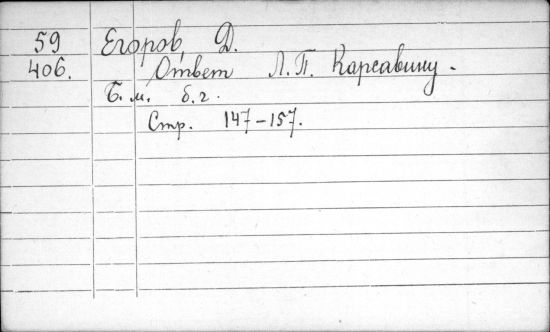 59 Егоров, Д.
406. Ответ Л.П. Карсавину.
Б. м. б. г.
Стр. 147-157.